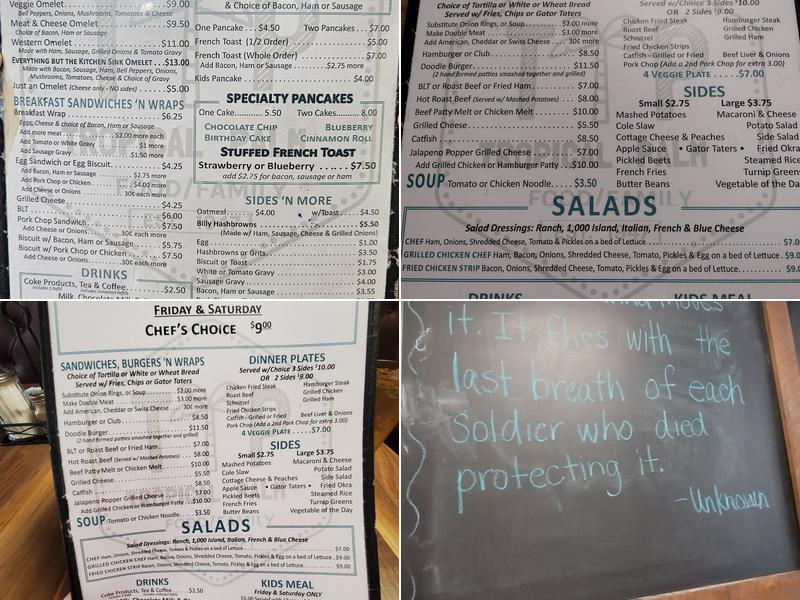 Veggie Omelet $9.00
Bell Peppers, Onions, Mushrooms, Tomatoes & Cheese
Meat & Cheese Omelet $9.50
Choice of Bacon, Ham or Sausage
Western Omelet $11.00
Made with Ham, Sausage, Grilled Onions & Tomato Gravy
EVERYTHING BUT THE KITCHEN SINK OMELET $13.00
Made with Bacon, Sausage, Ham, Bell Peppers, Onions,
Mushrooms, Tomatoes, Cheese & Choice of Gravy
Just an Omelet (Cheese only - NO sides) $5.00
BREAKFAST SANDWICHES 'N WRAPS
Breakfast Wrap $6.25
Eggs, Cheese & choice of Bacon, Ham or Sausage
Add more meat $2.00 more each
Add Tomato or White Gravy $1 more
Add Sausage Gravy $1.50 more
Egg Sandwich or Egg Biscuit $4.25
Add Bacon, Ham or Sausage $2.75 more
Add Pork Chop or Chicken $4.00 more
Add Cheese or Onions 30¢ more each
Grilled Cheese $4.25
BLT $6.00
Pork Chop Sandwich $7.50
Add Cheese or Onions 30¢ more each
Biscuit w/ Bacon, Ham or Sausage $5.75
Biscuit w/ Pork Chop or Chicken $7.50
Add Cheese or Onions 30¢ more each
DRINKS
Coke Products, Tea & Coffee $2.50
& Choice of Bacon, Ham or Sausage
One Pancake $4.50 Two Pancakes $7.00
French Toast (1/2 Order) $5.00
French Toast (Whole Order) $7.00
Add Bacon, Ham or Sausage $2.75 more
Kids Pancake $4.00
SPECIALTY PANCAKES
One Cake 5.50 Two Cakes 8.00
CHOCOLATE CHIP BLUEBERRY
BIRTHDAY CAKE CINNAMON ROLL
STUFFED FRENCH TOAST
Strawberry or Blueberry $7.50
add $2.75 for bacon, sausage or ham
SIDES 'N MORE
Oatmeal $4.00 w/Toast $4.50
Billy Hashbrowns $5.50
(Made w/ Ham, Sausage, Cheese & Grilled Onions)
Egg $1.00
Hashbrowns or Grits $3.50
Biscuit or Toast $1.75
White or Tomato Gravy $3.00
Sausage Gravy $4.00
Bacon, Ham or Sausage $3.55
Choice of Tortilla or White or Wheat Bread
Served w/ Fries, Chips or Gator Taters
Substitute Onion Rings, or Soup $2.00 more
Make Double Meat $3.00 more
Add American, Cheddar or Swiss Cheese 30¢ more
Hamburger or Club $8.50
Doodle Burger $11.50
(2 hand formed patties smashed together and grilled)
BLT or Roast Beef or Fried Ham $7.00
Hot Roast Beef (Served w/ Mashed Potatoes) $8.00
Beef Patty Melt or Chicken Melt $10.00
Grilled Cheese $5.50
Catfish $8.50
Jalapeno Popper Grilled Cheese $7.00
Add Grilled Chicken or Hamburger Patty $10.00
SOUP Tomato or Chicken Noodle $3.50
Served w/Choice 3 Sides $10.00
OR 2 Sides $9.00
Chicken Fried Steak Hamburger Steak
Roast Beef Grilled Chicken
Schnitzel Grilled Ham
Fried Chicken Strips
Catfish - Grilled or Fried Beef Liver & Onions
Pork Chop (Add a 2nd Pork Chop for extra 3.00)
4 VEGGIE PLATE $7.00
SIDES
Small $2.75 Large $3.75
Mashed Potatoes Macaroni & Cheese
Cole Slaw Potato Salad
Cottage Cheese & Peaches Side Salad
Apple Sauce • Gator Taters • Fried Okra
Pickled Beets Steamed Rice
French Fries Turnip Greens
Butter Beans Vegetable of the Day
SALADS
Salad Dressings: Ranch, 1,000 Island, Italian, French & Blue Cheese
CHEF Ham, Onions, Shredded Cheese, Tomato & Pickles on a bed of Lettuce $7.0
GRILLED CHICKEN CHEF Ham, Bacon, Onions, Shredded Cheese, Tomato, Pickles & Egg on a bed of Lettuce $9.0
FRIED CHICKEN STRIP Bacon, Onions, Shredded Cheese, Tomato, Pickles & Egg on a bed of Lettuce $9.0
DRINKS KIDS MEAL
FRIDAY & SATURDAY
CHEF'S CHOICE $9.00
SANDWICHES, BURGERS 'N WRAPS
Choice of Tortilla or White or Wheat Bread
Served w/ Fries, Chips or Gator Taters
Substitute Onion Rings, or Soup $2.00 more
Make Double Meat $3.00 more
Add American, Cheddar or Swiss Cheese 30¢ more
Hamburger or Club $8.50
Doodle Burger $11.50
(2 hand formed patties smashed together and grilled)
BLT or Roast Beef or Fried Ham $7.00
Hot Roast Beef (Served w/ Mashed Potatoes) $8.00
Beef Patty Melt or Chicken Melt $10.00
Grilled Cheese $5.50
Catfish $8.50
Jalapeno Popper Grilled Cheese $7.00
Add Grilled Chicken or Hamburger Patty $10.00
SOUP Tomato or Chicken Noodle $3.50
DINNER PLATES
Served w/Choice 3 Sides $10.00
OR 2 Sides $9.00
Chicken Fried Steak Hamburger Steak
Roast Beef Grilled Chicken
Schnitzel Grilled Ham
Fried Chicken Strips
Catfish - Grilled or Fried Beef Liver & Onions
Pork Chop (Add a 2nd Pork Chop for extra 3.00)
4 VEGGIE PLATE $7.00
SIDES
Small $2.75 Large $3.75
Mashed Potatoes Macaroni & Cheese
Cole Slaw Potato Salad
Cottage Cheese & Peaches Side Salad
Apple Sauce • Gator Taters • Fried Okra
Pickled Beets Steamed Rice
French Fries Turnip Greens
Butter Beans Vegetable of the Day
SALADS
Salad Dressings: Ranch, 1,000 Island, Italian, French & Blue Cheese
CHEF Ham, Onions, Shredded Cheese, Tomato & Pickles on a bed of Lettuce $7.00
GRILLED CHICKEN CHEF Ham, Bacon, Onions, Shredded Cheese, Tomato, Pickles & Egg on a bed of Lettuce $9.00
FRIED CHICKEN STRIP Bacon, Onions, Shredded Cheese, Tomato, Pickles & Egg on a bed of Lettuce $9.00
DRINKS
Coke Products, Tea & Coffee $2.50
KIDS MEAL
Friday & Saturday ONLY
moves
it. It flies with the
last breath of each
Soldier who died
protecting it.
-Unknown